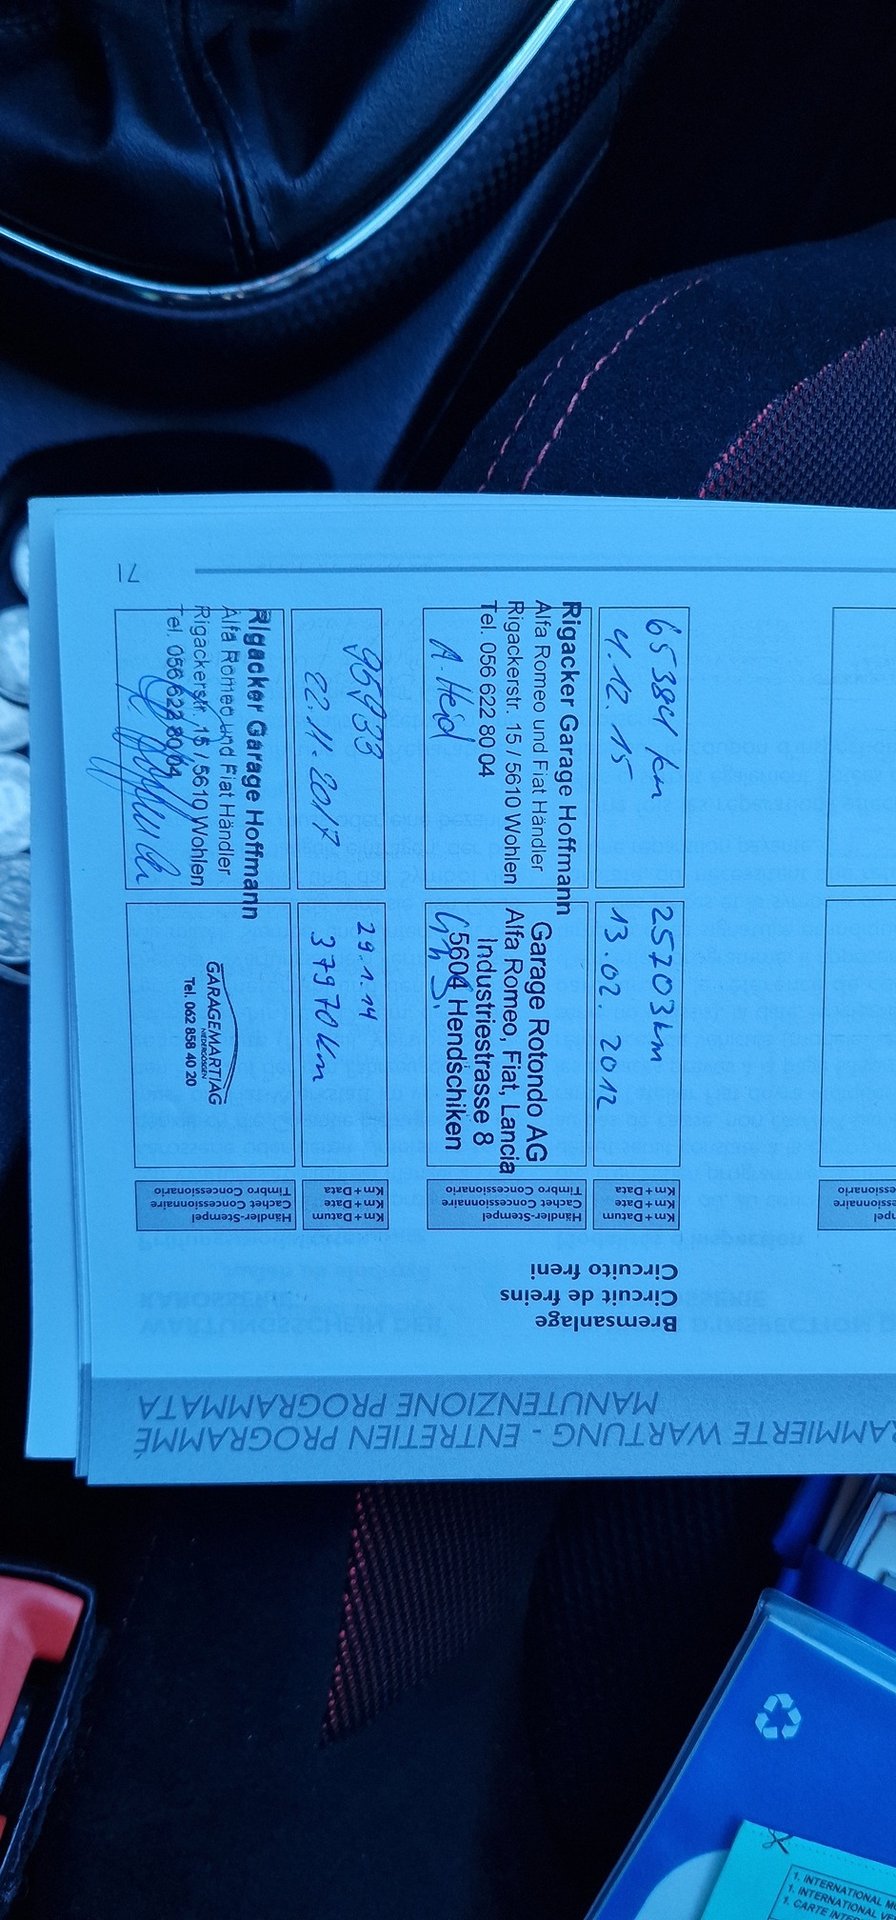 MANUTENZIONE PROGRAMMATA
WARTUNG - ENTRETIEN PROGRAMMÉ
Bremsanlage
Circuit de freins
Circuito freni
Km + Datum
Km + Date
Km + Data
25203 km
13.02.2012
Händler-Stempel
Cachet Concessionnaire
Timbro Concessionario
Garage Rotondo AG
Alfa Romeo, Fiat, Lancia
Industriestrasse 8
5604 Hendschiken
65384 km
4.12.15
Rigacker Garage Hoffmann
Alfa Romeo und Fiat Händler
Rigackerstr. 15 / 5610 Wohlen
Tel. 056 622 80 04
A. Heid
Km + Datum
Km + Date
Km + Data
29.1.14
37970 Km
Händler-Stempel
Cachet Concessionnaire
Timbro Concessionario
GARAGEMARTIAG
NIEDERGÖSGEN
Tel. 062 858 40 20
95933
22.11.2017
Rigacker Garage Hoffmann
Alfa Romeo und Fiat Händler
Rigackerstr. 15 / 5610 Wohlen
Tel. 056 622 80 04
71
1. INTERNATIONAL
1. INTERNATIONAL
1. CARTE